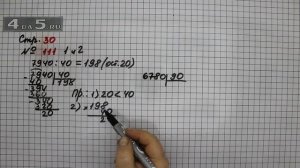 4DO5.RU
Стр. 30
№ 111 1 и 2
7940 : 40 = 198 (ост. 20)
7940 40
40 198
394
360
340
320
20
Пр.: 1) 20 < 40
2) × 198
6780 90